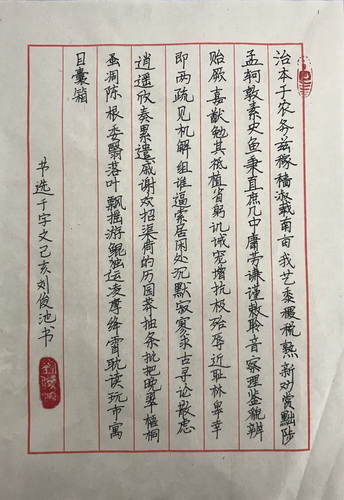 治本于农务兹稼穑俶载南亩我艺黍稷税熟新劝赏黜陟
孟轲敦素史鱼秉直庶几中庸劳谦谨敕聆音察理鉴貌辨
贻厥嘉猷勉其祗植省躬讥诫宠增抗极殆辱近耻林皋幸
即两疏见机解组谁逼索居闲处沉默寂寥求古寻论散虑
逍遥欣奏累遣戚谢欢招渠荷的历园莽抽条枇杷晚翠梧桐
蚤凋陈根委翳落叶飘摇游鲲独运凌摩绛霄耽读玩市寓
目囊箱
书选千字文己亥刘俊池书